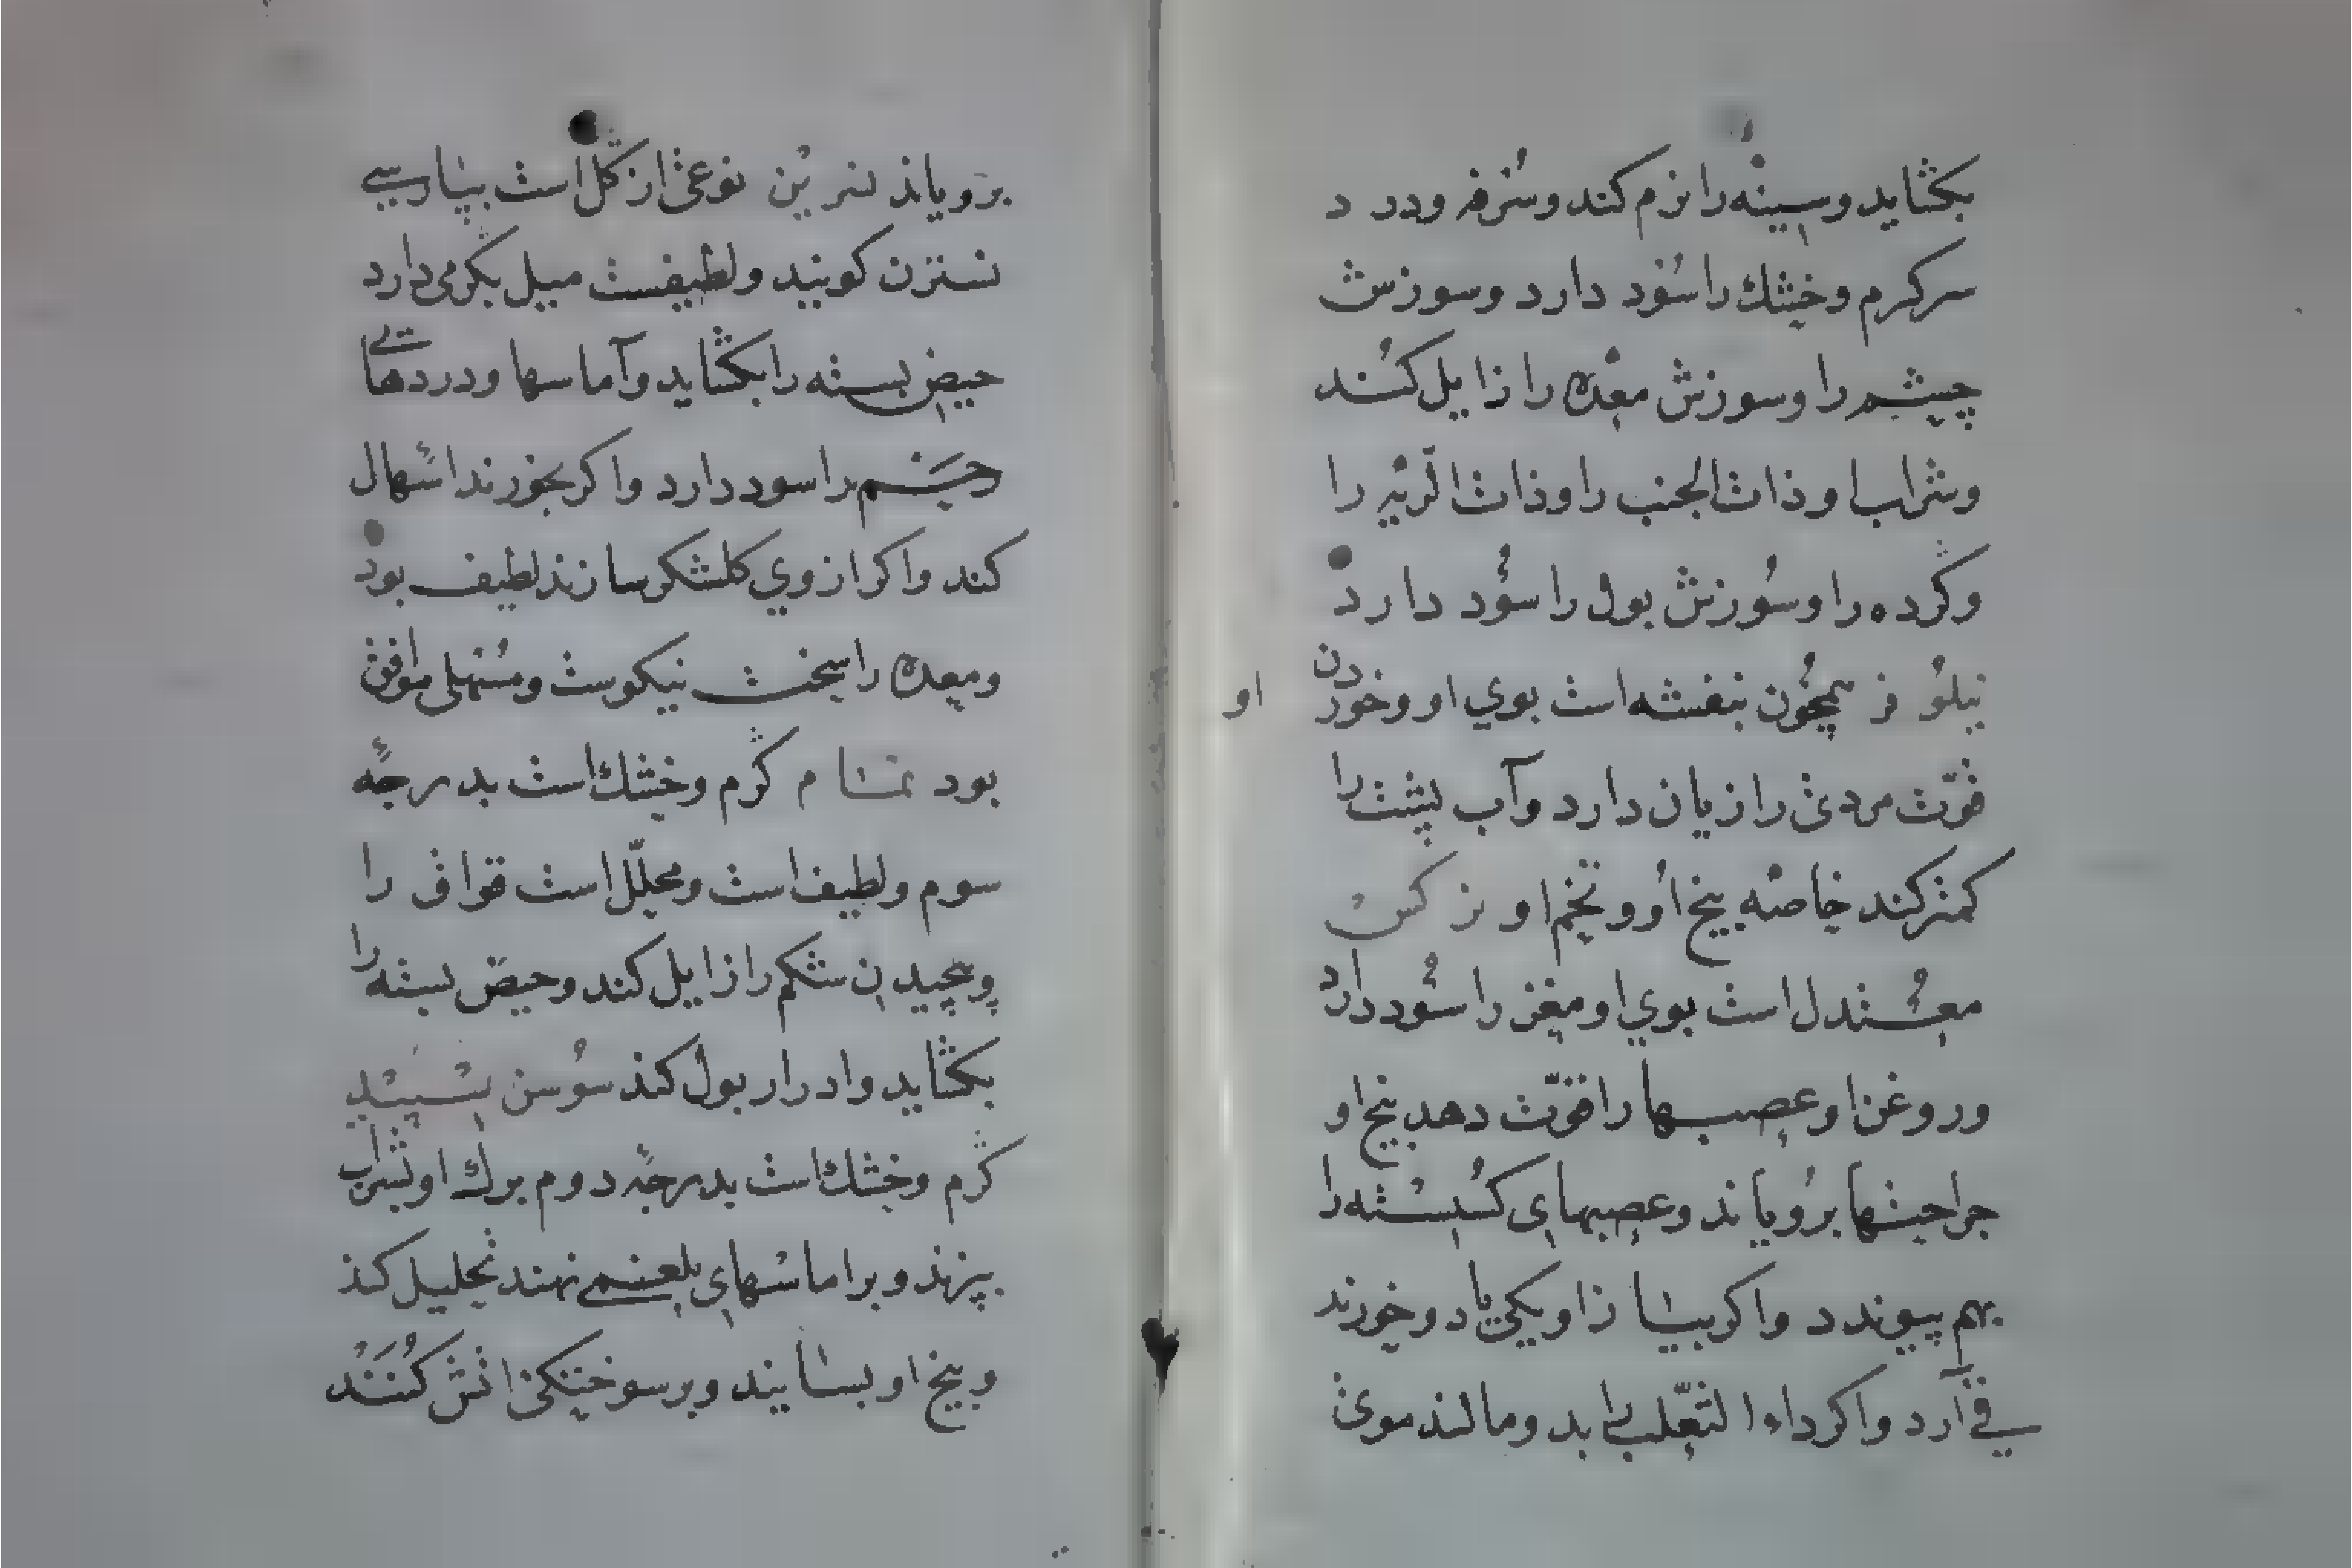 بکشاید وسینه را نرم کند وسرفه ودرد
سر کرم وخشك را سود دارد وسوزش
چشم را وسوزش معده را زایل کند
وشراب او ذات الجنب را وذات الریه را
وکرده را وسوزش بول را سود دارد
نیلوفر همچون بنفشه است بوي او وخوردن او
قوّت مردی را زیان دارد وآب پشت را
کمتر کند خاصه بیخ او وتخم او نرکس
معتدل است بوي او مغز را سود دارد
وروغن او عصبها را قوّت دهد بیخ او
جراحتها برویاند وعصبهای کسسته را
بهم پیوندد واکر بسیار از او یکی یا دو خورند
قی آرد واکر داء الثعلب را بدو مالند موی
برویاند نسرین نوعی از کل است بپارسی
نسترن کویند ولطیفست میل بکرمی دارد
حیض بسته را بکشاید وآماسها ودردهای
چشم را سود دارد واکر بخورند اسهال
کند واکر از وي کلشکر سازند لطیف بود
ومعده را سخت نیکوست ومسهلی موافق
بود نمّام کرم وخشك است بدرجه
سوم ولطیف است ومحلّل است فواق را
وپیچیدن شکم را زایل کند وحیض بسته را
بکشاید وادرار بول کند سوسن سپید
کرم وخشك است بدرجه دوم برك او بشراب
بپزند وبر اماسهای بلغمی نهند تحلیل کند
وبیخ او بسایند وبر سوختکی اتش کنند